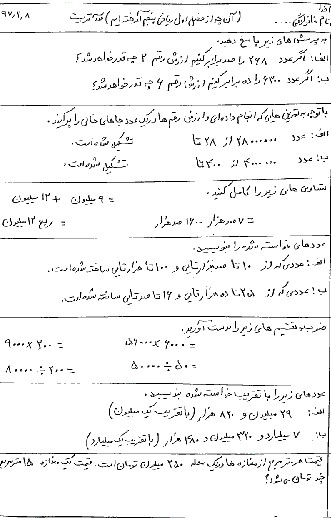 (آن چه از فصل اول ریاضی پنجم آموخته ایم) ۹۷/۷/۸
به پرسش های زیر پاسخ دهید.
الف: اگر عدد ۲۶۸ را صد برابر کنیم ارزش رقم ۲ چه قدر خواهد شد؟
ب: اگر عدد ۶۳۰۰ را ده برابر کنیم ارزش رقم ۶ چه قدر خواهد شد؟
با توجه به تمرین هایی که انجام داده ای و ارزش رقم ها در یک عدد جاهای خالی را پر کنید.
الف: عدد ۲۸۰۰۰۰۰ از ۲۸ تا تشکیل شده است.
ب: عدد ۴۰۰۰۰۰ از ۴۰۰ تا تشکیل شده است.
تساوی های زیر را کامل کنید.
= ۹ میلیون + ۱۲ میلیون
= ۷ صد هزار ۱۶۰۰ صد هزار = ربع ۱۲ میلیون
عددهای خواسته شده را بنویسید.
الف: عددی که از ۱۰ تا صد هزارتایی و ۱۰۰ تا هزارتایی ساخته شده است.
ب: عددی که از ۲۵۸ تا ده هزارتایی و ۱۶ تا صدتایی ساخته شده است.
ضرب و تقسیم های زیر را بدست آورید.
= ۹۰۰۰ × ۳۰۰ = ۵۶۰۰۰ × ۶۰۰۰
= ۸۰۰۰۰ ÷ ۲۰۰ = ۵۰۰۰۰ ÷ ۵۰
عددهای زیر را با تقریب خواسته شده بنویسید.
الف: ۲۹ میلیون و ۸۲۰ هزار (با تقریب یک میلیون)
ب: ۷ میلیارد و ۳۲۰ میلیون و ۱۶۸۰ هزار (با تقریب یک میلیارد)
قیمت هر متر مربع از مغازه ها در یک محله ۲۵۰ میلیون تومان است. قیمت یک مغازه ۱۵ متر مربعی
چند تومان می شود؟